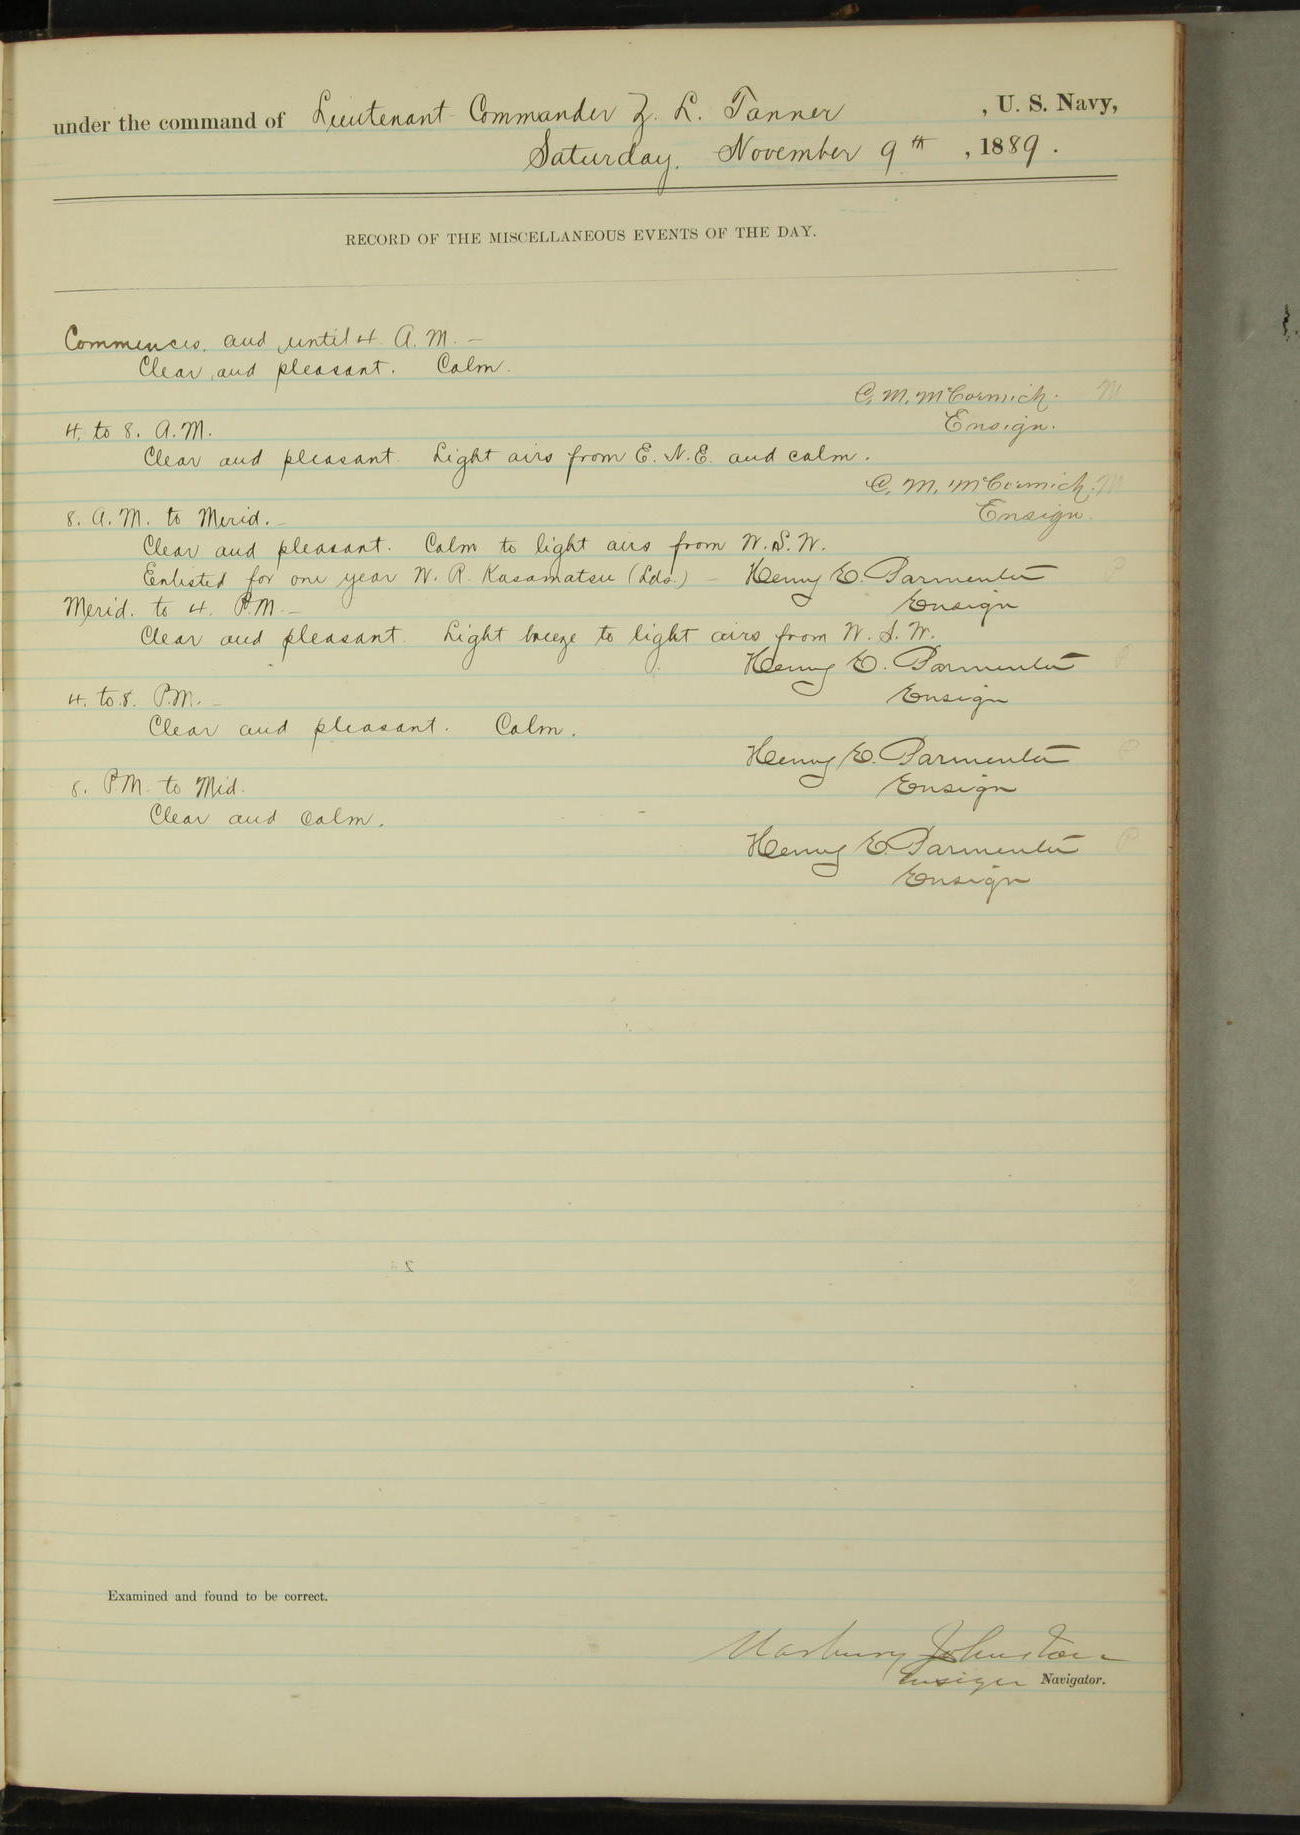 under the command of Lieutenant Commander Z. L. Tanner , U. S. Navy,
Saturday, November 9th , 1889.
RECORD OF THE MISCELLANEOUS EVENTS OF THE DAY.
Commences, and until 4 A.M. -
Clear and pleasant. Calm.
C. M. McCormick.
Ensign.
4. to 8. A.M.
Clear and pleasant. Light airs from E. N.E. and calm.
C. M. McCormick.
Ensign.
8. A.M. to Merid. -
Clear and pleasant. Calm to light airs from W.S.W.
Enlisted for one year W. R. Kasamatsu (Lds.) - Henry E. Parmenter
Ensign
Merid. to 4. P.M. -
Clear and pleasant. Light breeze to light airs from W. S. W.
Henry E. Parmenter
Ensign
4. to 8. P.M. -
Clear and pleasant. Calm.
Henry E. Parmenter
Ensign
8. P.M. to Mid.
Clear and calm.
Henry E. Parmenter
Ensign
Examined and found to be correct.
Marbury Johnston
Ensign Navigator.